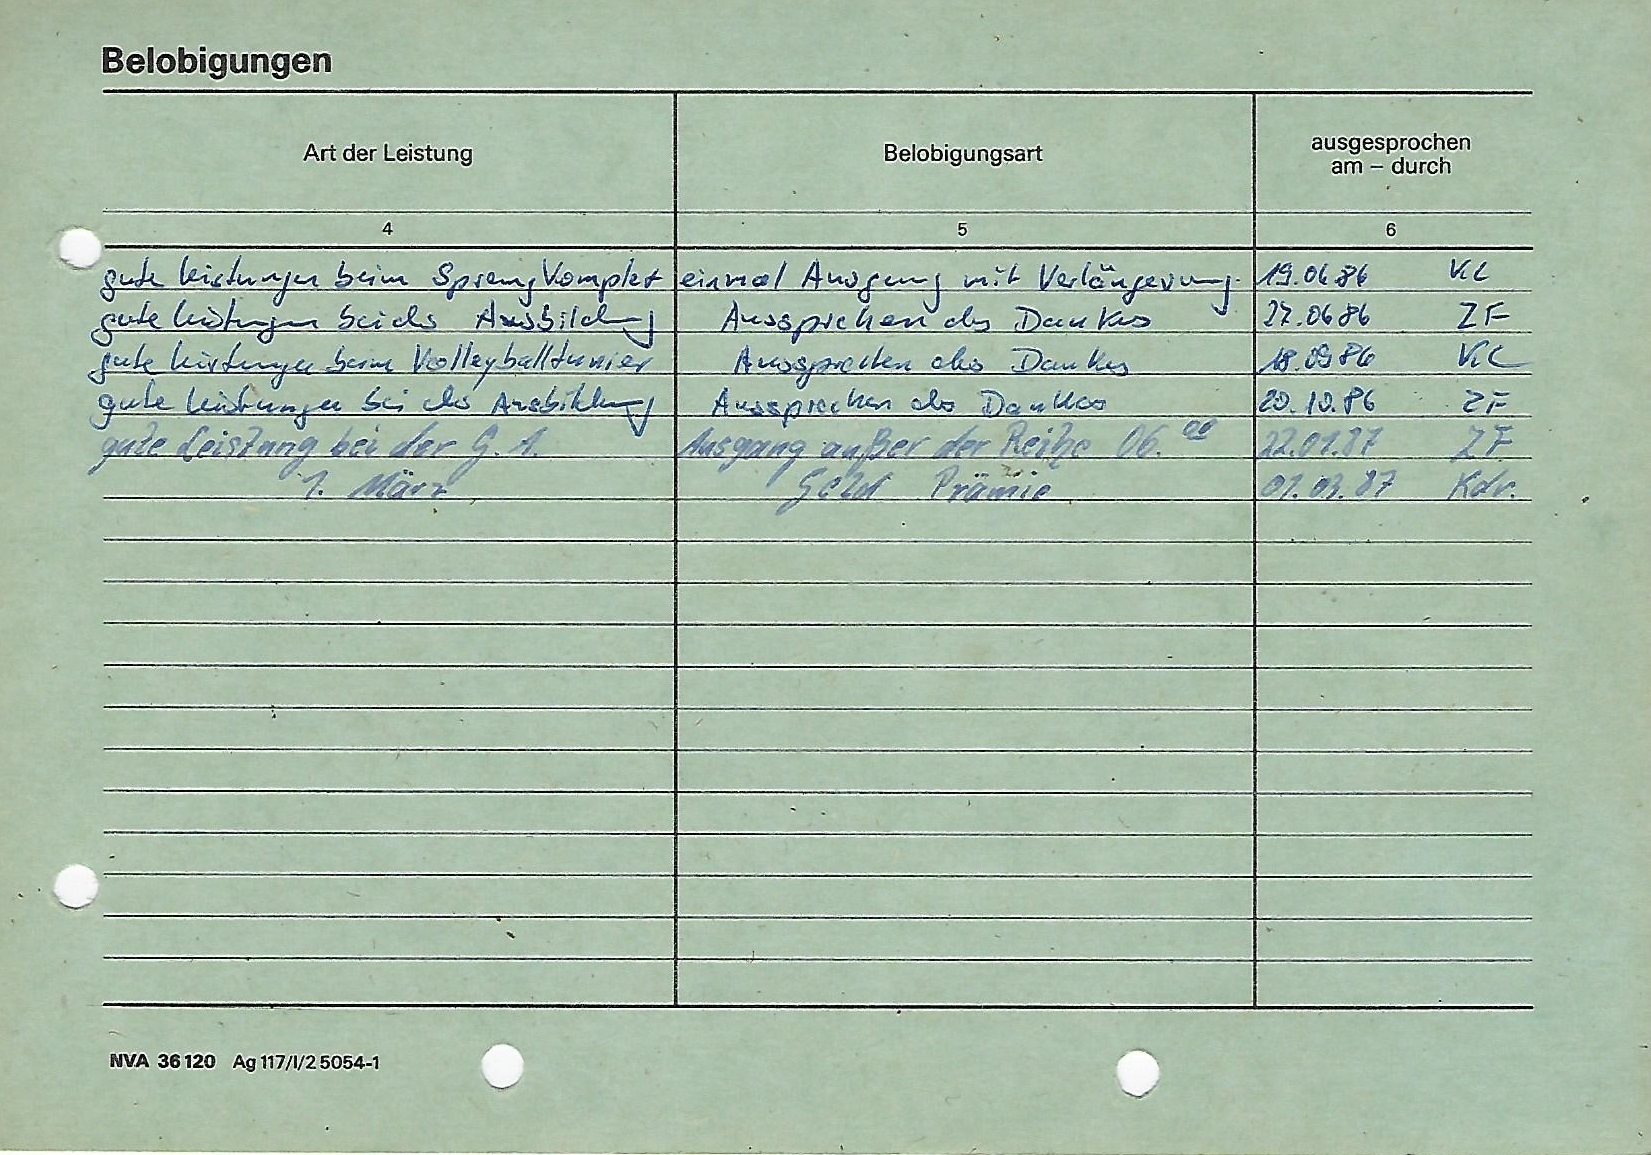 Belobigungen
Art der Leistung Belobigungsart ausgesprochen
am – durch
4 5 6
gute Leistungen beim Sprengkomplex einmal Ausgang mit Verlängerung 19.06.86 KC
gute Leistungen bei der Ausbildung Aussprechen des Dankes 27.06.86 ZF
gute Leistungen beim Volleyballturnier Aussprechen des Dankes 18.09.86 KC
gute Leistungen bei der Ausbildung Aussprechen des Dankes 20.10.86 ZF
gute Leistung bei der G.A. Ausgang außer der Reihe 06.00 22.01.87 ZF
1. März Geld Prämie 01.03.87 Kdr.
NVA 36 120 Ag 117/I/2 5054-1